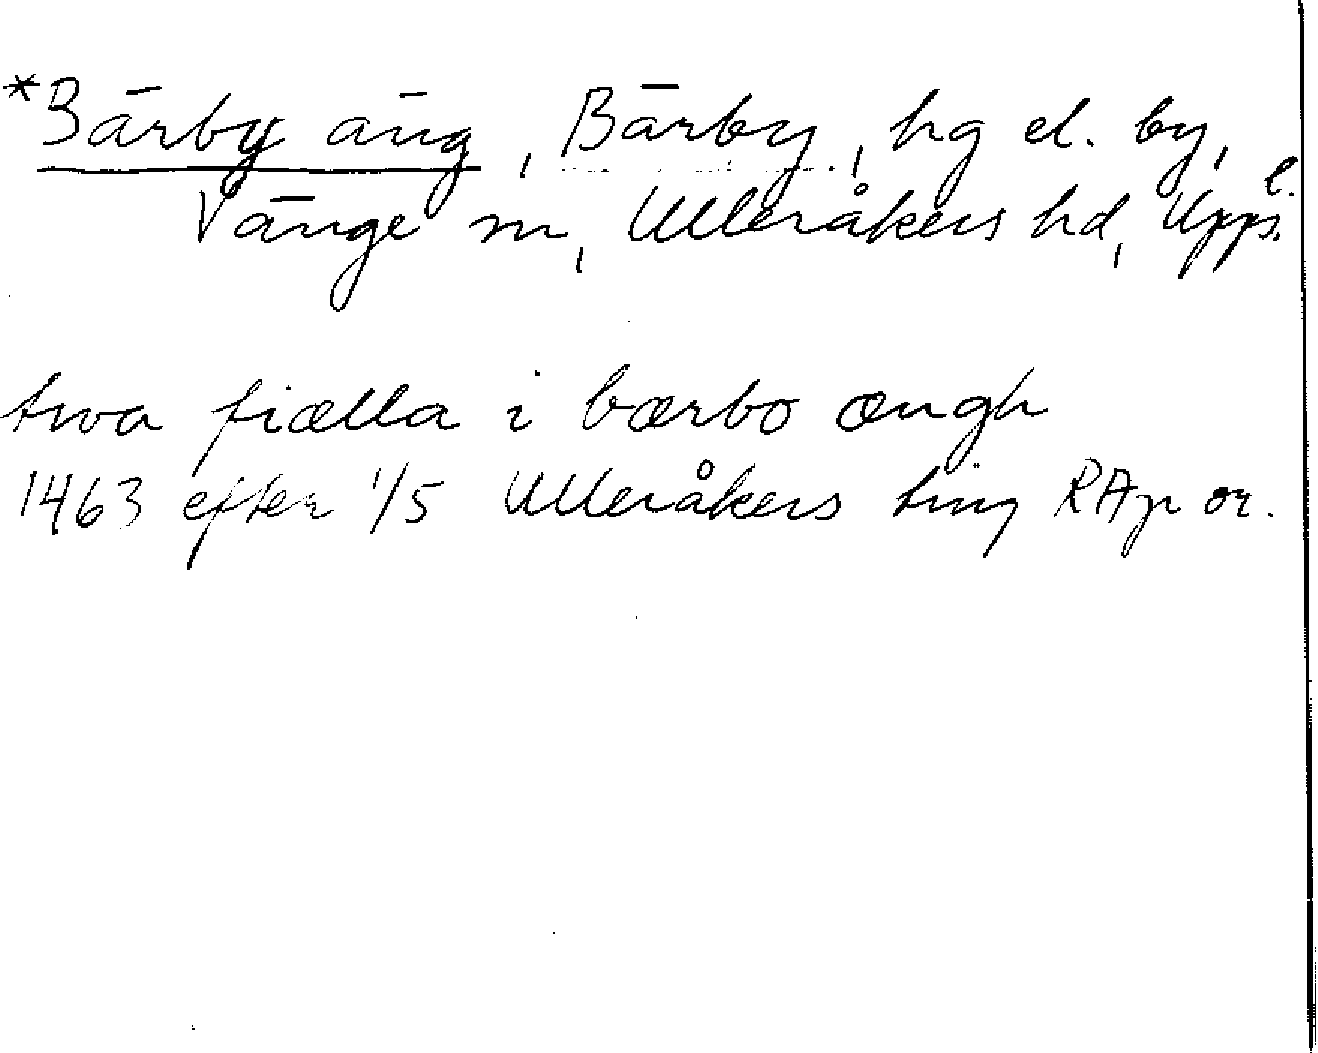 *Bärby äng, Bärby, hg el. by,
Vänge sn, Ulleråkers hd, Upps. l.
twa fiælla i bærbo ængh
1463 efter 1/5 Ulleråkers ting RAp or.